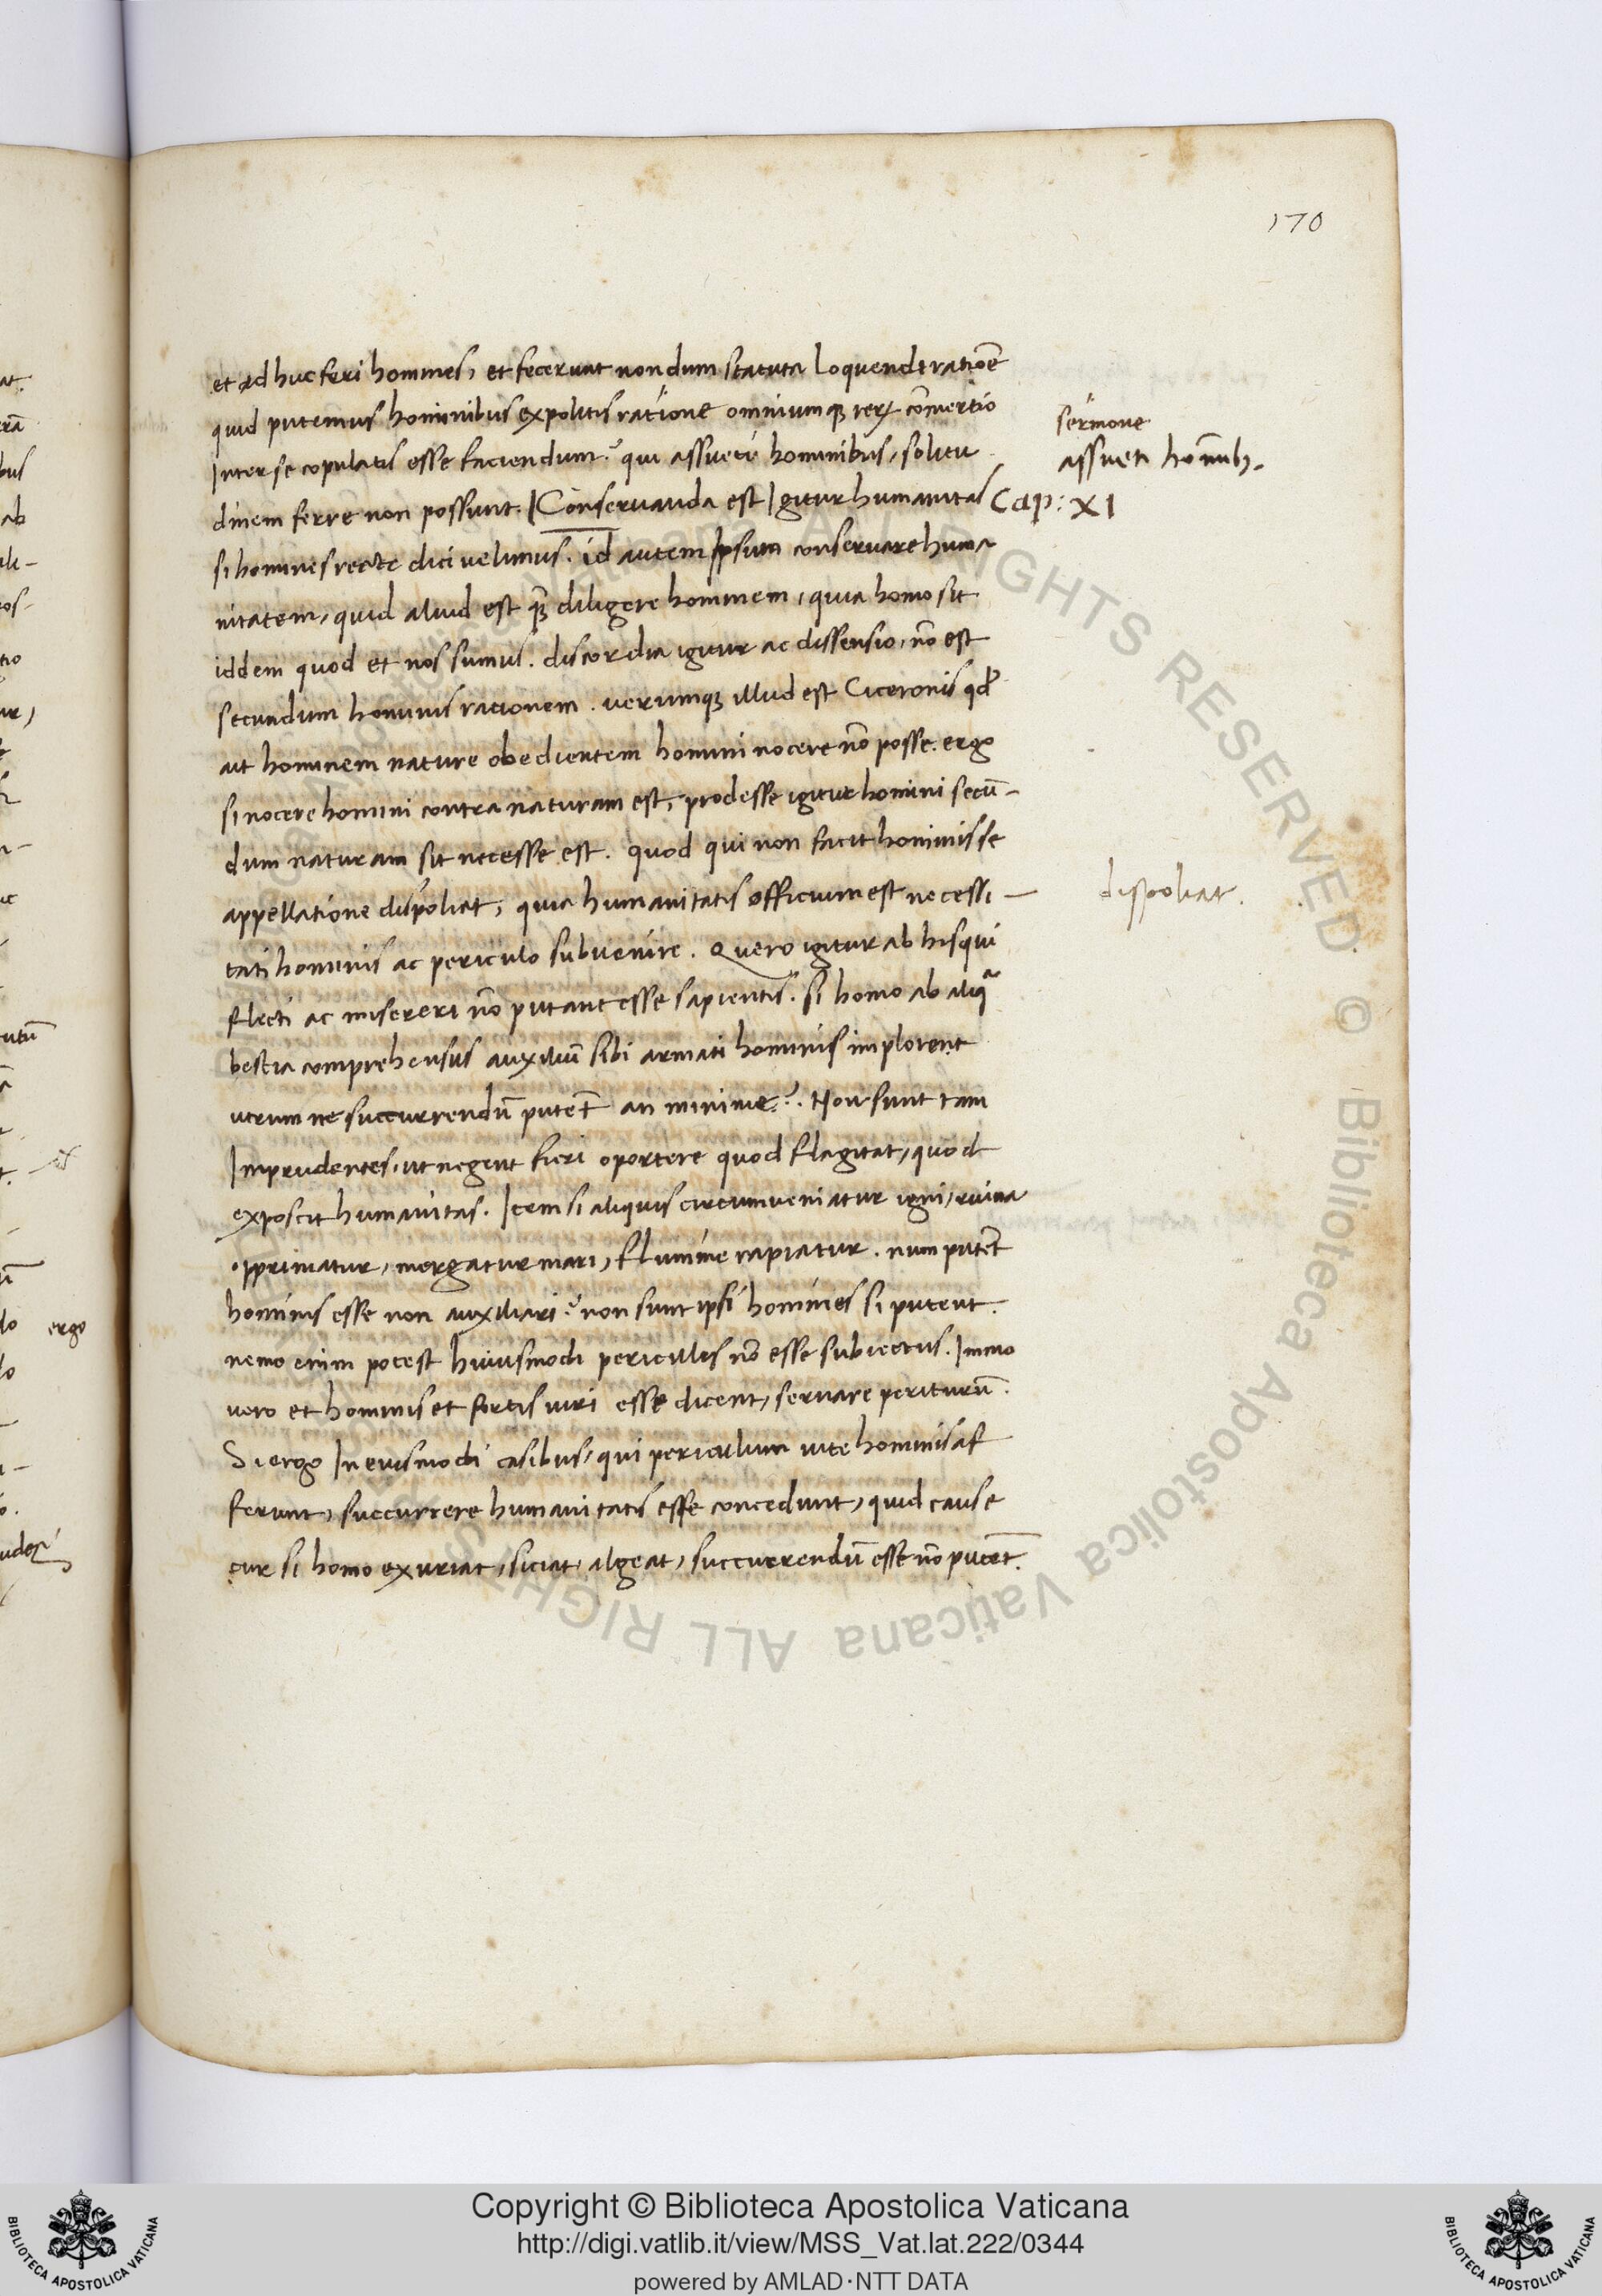 170
et adhuc feri homines, et fecerunt nondum statuta loquendi ratiōe
quid putemus hominibus expolitis ratione omniumqꝫ reꝝ cōmertio
Inter se copulatis esse faciendum? qui assueti hominibus, solitu
dinem ferre non possunt. Conservanda est Igitur humanitas
si homines recte dici velimus. id autem Ipsum conservare huma
nitatem, quid aliud est qꝫ̄ diligere hominem, quia homo sit
iddem quod et nos sumus. discordia igitur ac dissensio, nō est
secundum hominis rationem. verumqꝫ illud est Ciceronis qđ
ait hominem nature obedientem homini nocere nō posse. ergo
si nocere homini contra naturam est, prodesse igitur homini secū-
dum naturam sit necesse est. quod qui non facit hominis se
appellatione dispoliat, quia humanitatis officium est necessi-
tati hominis ac periculo subvenire. Quero igitur ab his qui
flecti ac misereri nō putant esse sapientis. si homo ab aliqᵃ
bestia comprehensus auxiliū sibi armati hominis implorent
utrum ne succurrendū putēt an minime? Non sunt tam
Imprudentes, ut negent fieri oportere quod flagitat, quod
exposcit humanitas. Item si aliquis circumveniatur igni, ruina
opprimatur, mergatur mari, flumine rapiatur. num putēt
hominis esse non auxiliari? non sunt ipsi homines si putent.
nemo enim potest huiusmodi periculis nō esse subiectus. Immo
vero et hominis et fortis viri esse dicent, servare periturū.
Si ergo In eiusmodi casibus, qui periculum vite hominis af
ferunt, succurrere humanitatis esse concedunt, quid cause
cur si homo exuriat, siciat, algeat, succurrendū esse nō putēt.
sermone
assueti homīnibꝫ.
Cap: XI
dispoliat.
ergo
Copyright © Biblioteca Apostolica Vaticana
http://digi.vatlib.it/view/MSS_Vat.lat.222/0344
powered by AMLAD·NTT DATA
BIBLIOTECA APOSTOLICA VATICANA
BIBLIOTECA APOSTOLICA VATICANA
ALL RIGHTS RESERVED © Biblioteca Apostolica Vaticana ALL RIGHTS